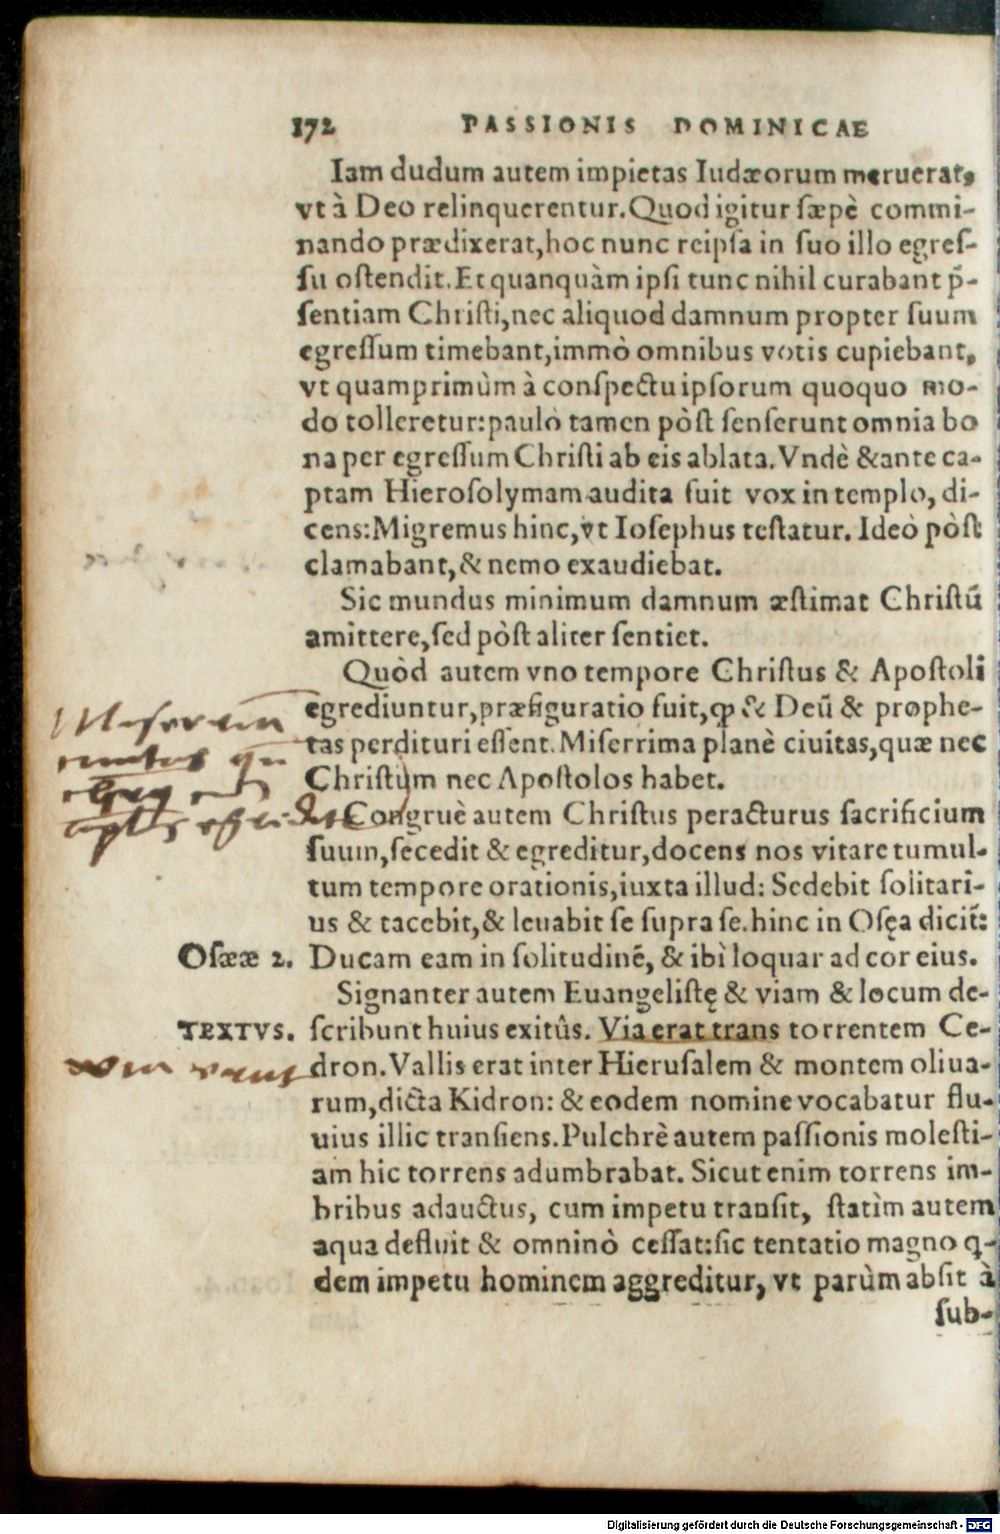 172 PASSIONIS DOMINICAE
Iam dudum autem impietas Iudæorum meruerat,
vt à Deo relinquerentur.Quod igitur sæpè commi-
nando prædixerat,hoc nunc reipſa in ſuo illo egreſ-
ſu oſtendit.Et quanquàm ipſi tunc nihil curabant p̃-
ſentiam Chriſti,nec aliquod damnum propter ſuum
egreſſum timebant,immò omnibus votis cupiebant,
vt quamprimùm à conſpectu ipſorum quoquo mo-
do tolleretur:paulò tamen pòſt ſenſerunt omnia bo
na per egreſſum Chriſti ab eis ablata. Vndè & ante ca-
ptam Hieroſolymam audita fuit vox in templo, di-
cens:Migremus hinc,vt Ioſephus teſtatur. Ideò pòſt
clamabant,& nemo exaudiebat.
Sic mundus minimum damnum æſtimat Chriſtũ
amittere,ſed pòſt aliter ſentiet.
Quòd autem vno tempore Chriſtus & Apoſtoli
egrediuntur,præfiguratio fuit,ꝙ & Deũ & prophe-
tas perdituri eſſent. Miſerrima planè ciuitas,quæ nec
Chriſtum nec Apoſtolos habet.
Congruè autem Chriſtus peracturus ſacrificium
ſuum,ſecedit & egreditur,docens nos vitare tumul-
tum tempore orationis,iuxta illud: Sedebit ſolitari-
us & tacebit,& leuabit ſe ſupra ſe.hinc in Oſęa dicit̃:
Oſææ 2. Ducam eam in ſolitudinẽ, & ibì loquar ad cor eius.
Signanter autem Euangeliſtę & viam & locum de-
TEXTVS. ſcribunt huius exitûs. Via erat trans torrentem Ce-
dron. Vallis erat inter Hieruſalem & montem oliua-
rum,dicta Kidron: & eodem nomine vocabatur flu-
uius illic tranſiens.Pulchrè autem paſſionis moleſti-
am hic torrens adumbrabat. Sicut enim torrens im-
bribus adauctus, cum impetu tranſit, ſtatìm autem
aqua defluit & omninò ceſſat:ſic tentatio magno q-
dem impetu hominem aggreditur, vt parùm abſit à
ſub-